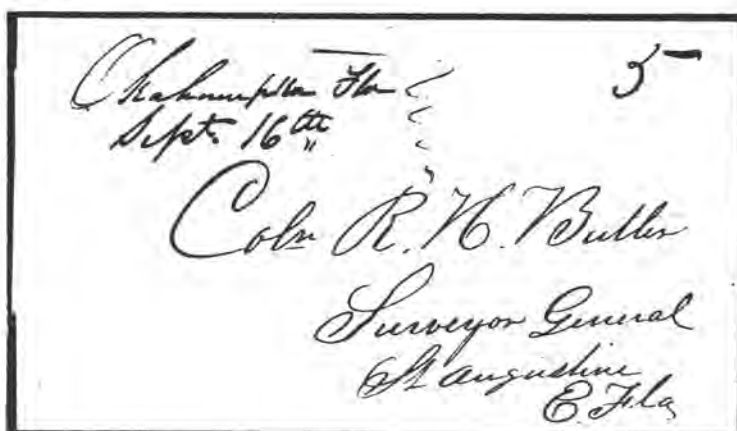 Okahumpka Fla
Sept. 16th
5
Coln R. H. Butler
Surveyor General
St Augustine
E. Fla